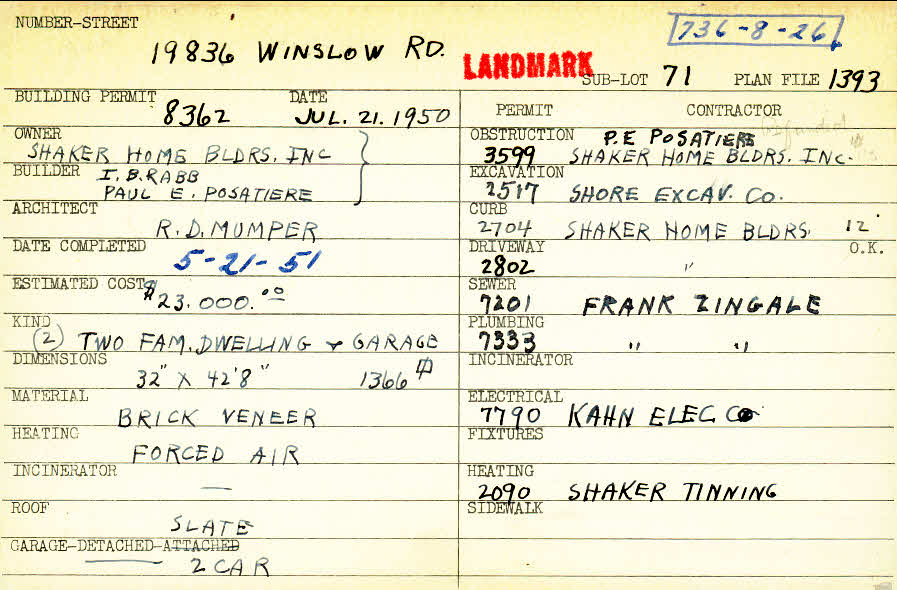 NUMBER-STREET
19836 WINSLOW RD.
736-8-26
LANDMARK
SUB-LOT 71 PLAN FILE 1393
BUILDING PERMIT 8362 DATE JUL. 21. 1950
OWNER SHAKER HOME BLDRS. INC
BUILDER I.B.RABB
PAUL E. POSATIERE
ARCHITECT R.D. MUMPER
DATE COMPLETED 5-21-51
ESTIMATED COST $23.000.00
KIND (2) TWO FAM. DWELLING & GARAGE
DIMENSIONS 32" X 42'8" 1366
MATERIAL BRICK VENEER
HEATING FORCED AIR
INCINERATOR —
ROOF SLATE
GARAGE-DETACHED-ATTACHED
2 CAR
PERMIT CONTRACTOR
OBSTRUCTION P.E POSATIERE
3599 SHAKER HOME BLDRS. INC.
EXCAVATION
2517 SHORE EXCAV. CO.
CURB
2704 SHAKER HOME BLDRS. 12'
DRIVEWAY O.K.
2802 "
SEWER
7201 FRANK ZINGALE
PLUMBING
7333 " "
INCINERATOR
ELECTRICAL
7790 KAHN ELEC CO
FIXTURES
HEATING
2090 SHAKER TINNING
SIDEWALK